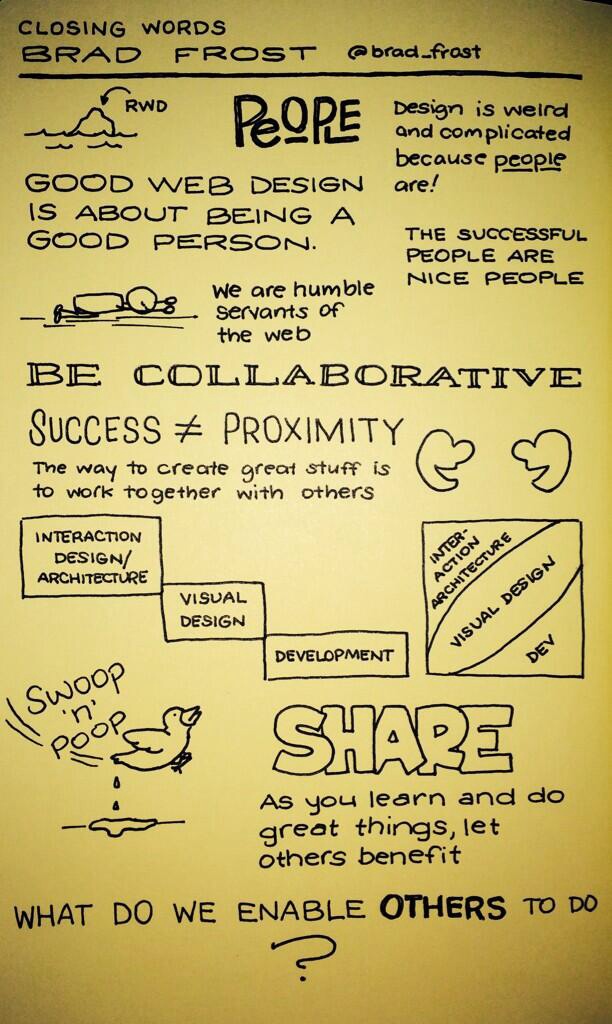 CLOSING WORDS
BRAD FROST @brad_frost
RWD
PEOPLE
Design is weird
and complicated
because people
are!
GOOD WEB DESIGN
IS ABOUT BEING A
GOOD PERSON.
THE SUCCESSFUL
PEOPLE ARE
NICE PEOPLE
We are humble
servants of
the web
BE COLLABORATIVE
SUCCESS ≠ PROXIMITY
The way to create great stuff is
to work together with others
INTERACTION
DESIGN/
ARCHITECTURE
VISUAL
DESIGN
DEVELOPMENT
INTER-
ACTION
ARCHITECTURE
VISUAL DESIGN
DEV
SWOOP
'n'
POOP
SHARE
As you learn and do
great things, let
others benefit
WHAT DO WE ENABLE OTHERS TO DO
?